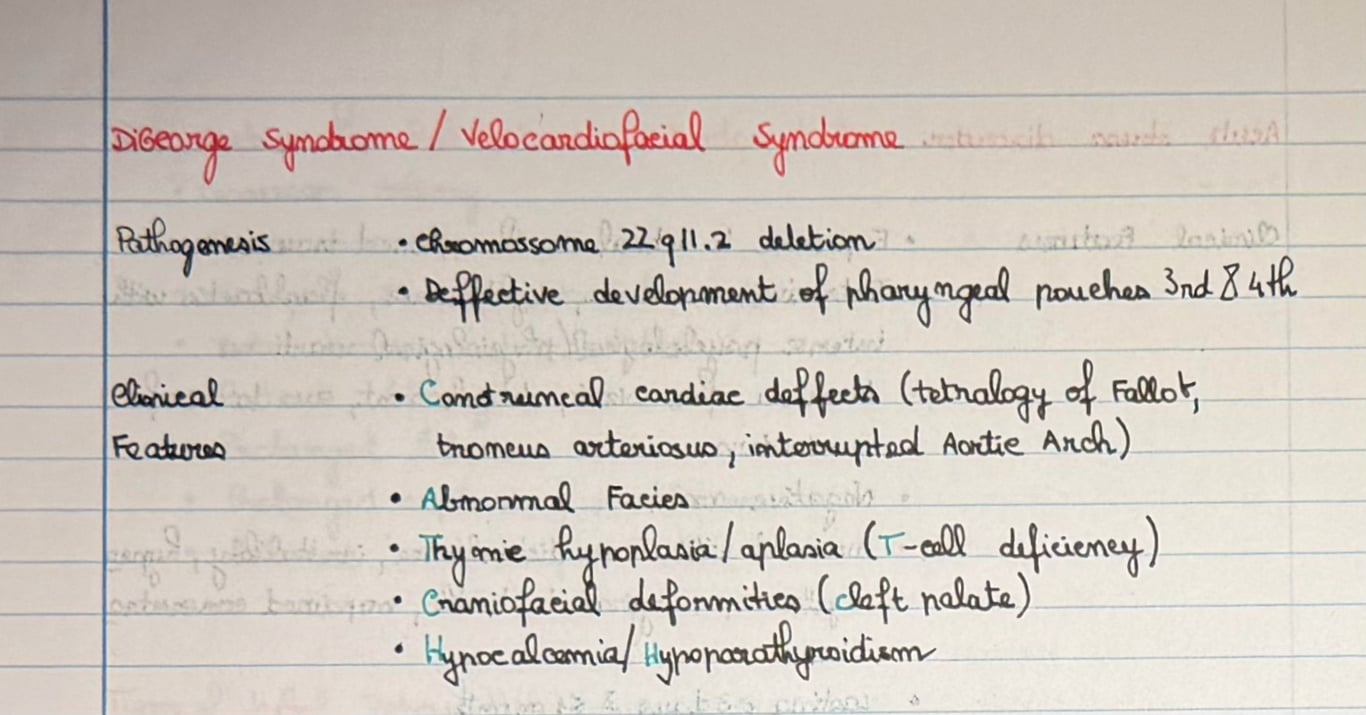 DiGeorge Syndrome / Velocardiofacial Syndrome
Pathogenesis • Chromossome 22q11.2 deletion
• Deffective development of pharyngeal pouches 3nd & 4th
Clinical • Conotruncal cardiac deffects (tetralogy of Fallot,
Features truncus arteriosus, interrupted Aortic Arch)
• Abnormal Facies
• Thymic hypoplasia/aplasia (T-cell deficiency)
• Craniofacial deformities (cleft palate)
• Hypocalcemia/Hypoparathyroidism